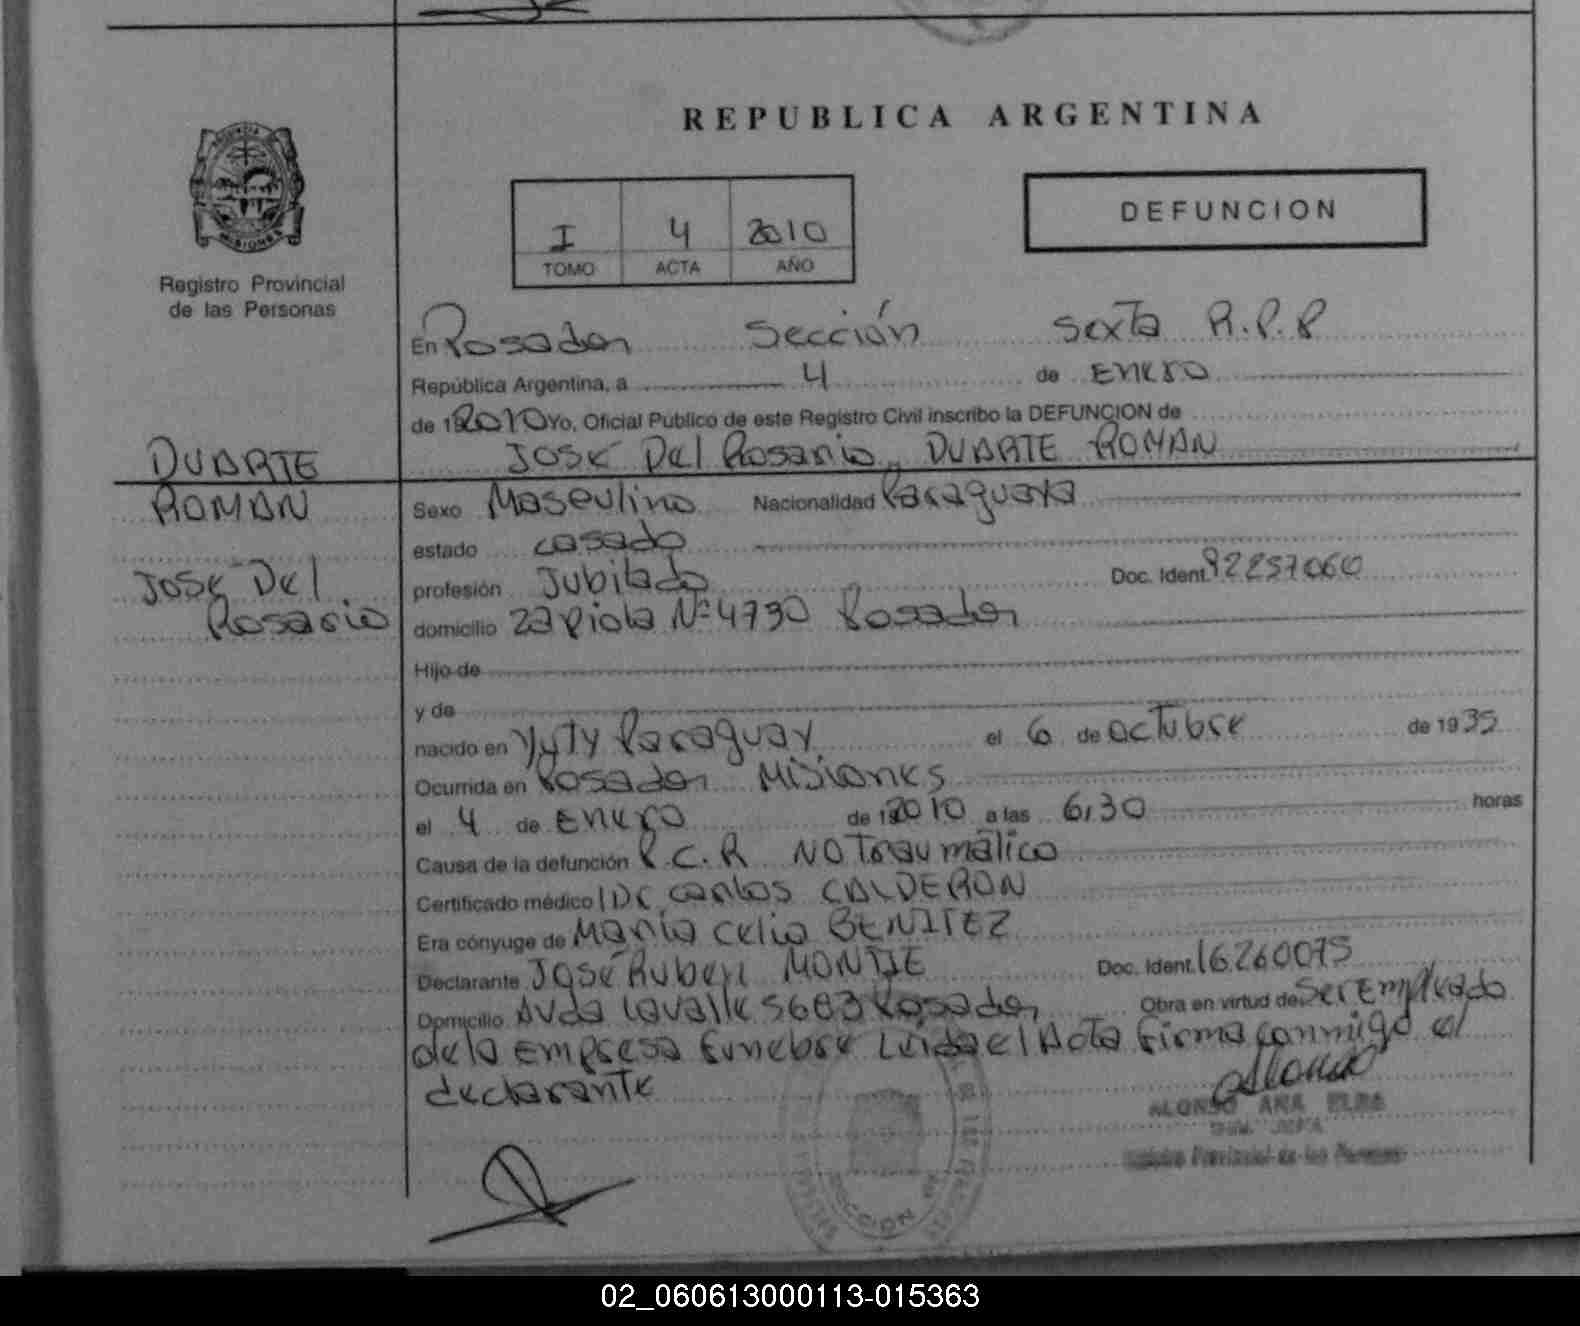 REPUBLICA ARGENTINA
DEFUNCION
I 4 2010
TOMO ACTA AÑO
MISIONES
Registro Provincial
de las Personas
En Posadas Sección Sexta R.P.P
República Argentina, a 4 de Enero
de 2010 Yo, Oficial Público de este Registro Civil inscribo la DEFUNCION de
José Del Rosario DUARTE ROMAN
DUARTE
ROMAN
José Del
Rosario
Sexo Masculino Nacionalidad Paraguaya
estado casado
profesión Jubilado Doc. Ident. 92257060
domicilio Zapiola Nº 4790 Posadas
Hijo de
y de
nacido en Yuty Paraguay el 6 de octubre de 1935
Ocurrida en Posadas Misiones
el 4 de Enero de 2010 a las 6,30 horas
Causa de la defunción P.C.R NO Traumático
Certificado médico Dr Carlos CALDERON
Era cónyuge de María Celia BENITEZ
Declarante José Ruben MONTIE Doc. Ident. 16260075
Domicilio Avda Lavalle 5683 Posadas Obra en virtud de Ser Empleado
de la Empresa Funebre Leida el Acta Firma conmigo el
declarante
ALONSO ANA ELBA
Provincial de las Personas
DIRECCION
02_060613000113-015363